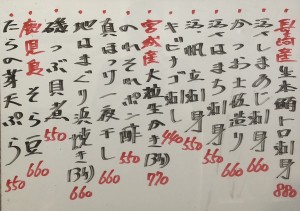 長崎産 生本鮪トロ刺身 880
しまあじ刺身 660
かつお土佐造り 660
刺身 550
帆立刺身 550
キビナゴ刺し 440
宮城産 大粒生かき(3ヶ) 770
のれそれポン酢 550
真ほっけ一夜干し 660
地はまぐり浜焼き(3ヶ) 660
磯つぶ貝煮 550
鹿児島 そら豆 660
たらの芽天ぷら 550